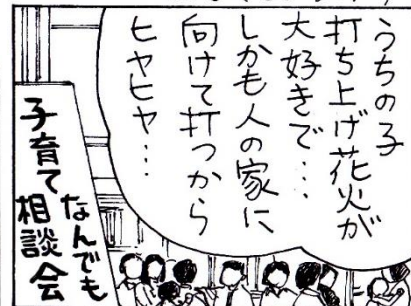 うちの子
打ち上げ花火が
大好きで…
しかも人の家に
向けて打つから
ヒヤヒヤ…
子育て
なんでも
相談会